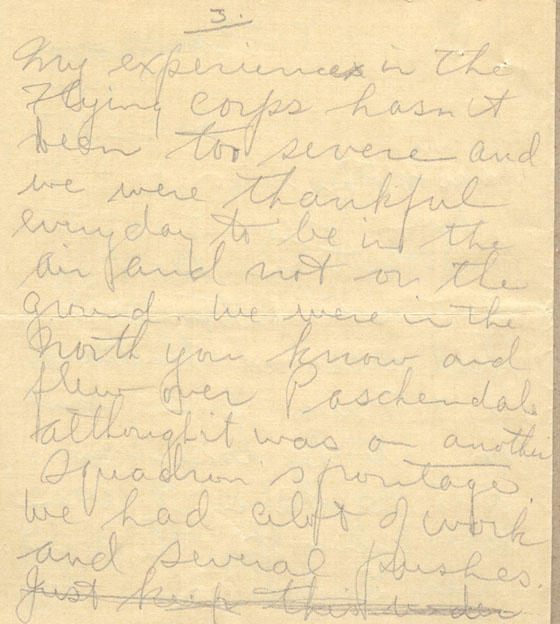 3.
My experiences in the
Flying Corps hasn't
been too severe and
we were thankful
everyday to be in the
air and not on the
ground. We were in the
North you know and
flew over Paschendal
althought it was on another
Squadron's frontage.
We had alot of work
and several pushes.
Just keep this under